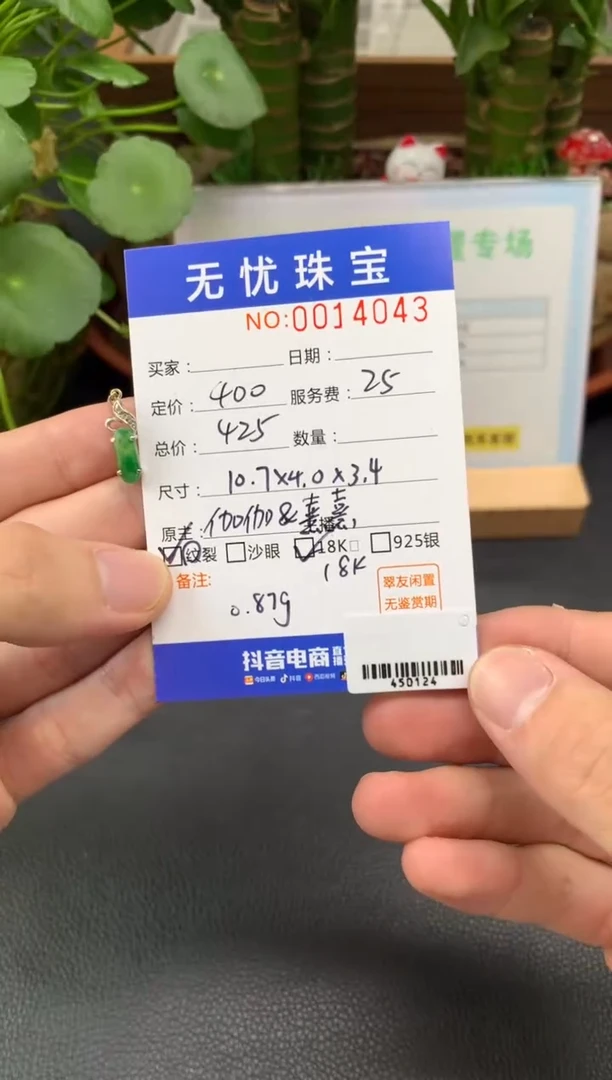 置专场
无忧珠宝
NO:0014043
买家: 日期:
定价: 400 服务费: 25
总价: 425 数量:
尺寸: 10.7×4.0×3.4
原主: 伽伽&
纹裂 沙眼 18K 925银
18K
备注:
0.87g
翠友闲置
无鉴赏期
抖音电商 直
播
今日头条 抖音
450124